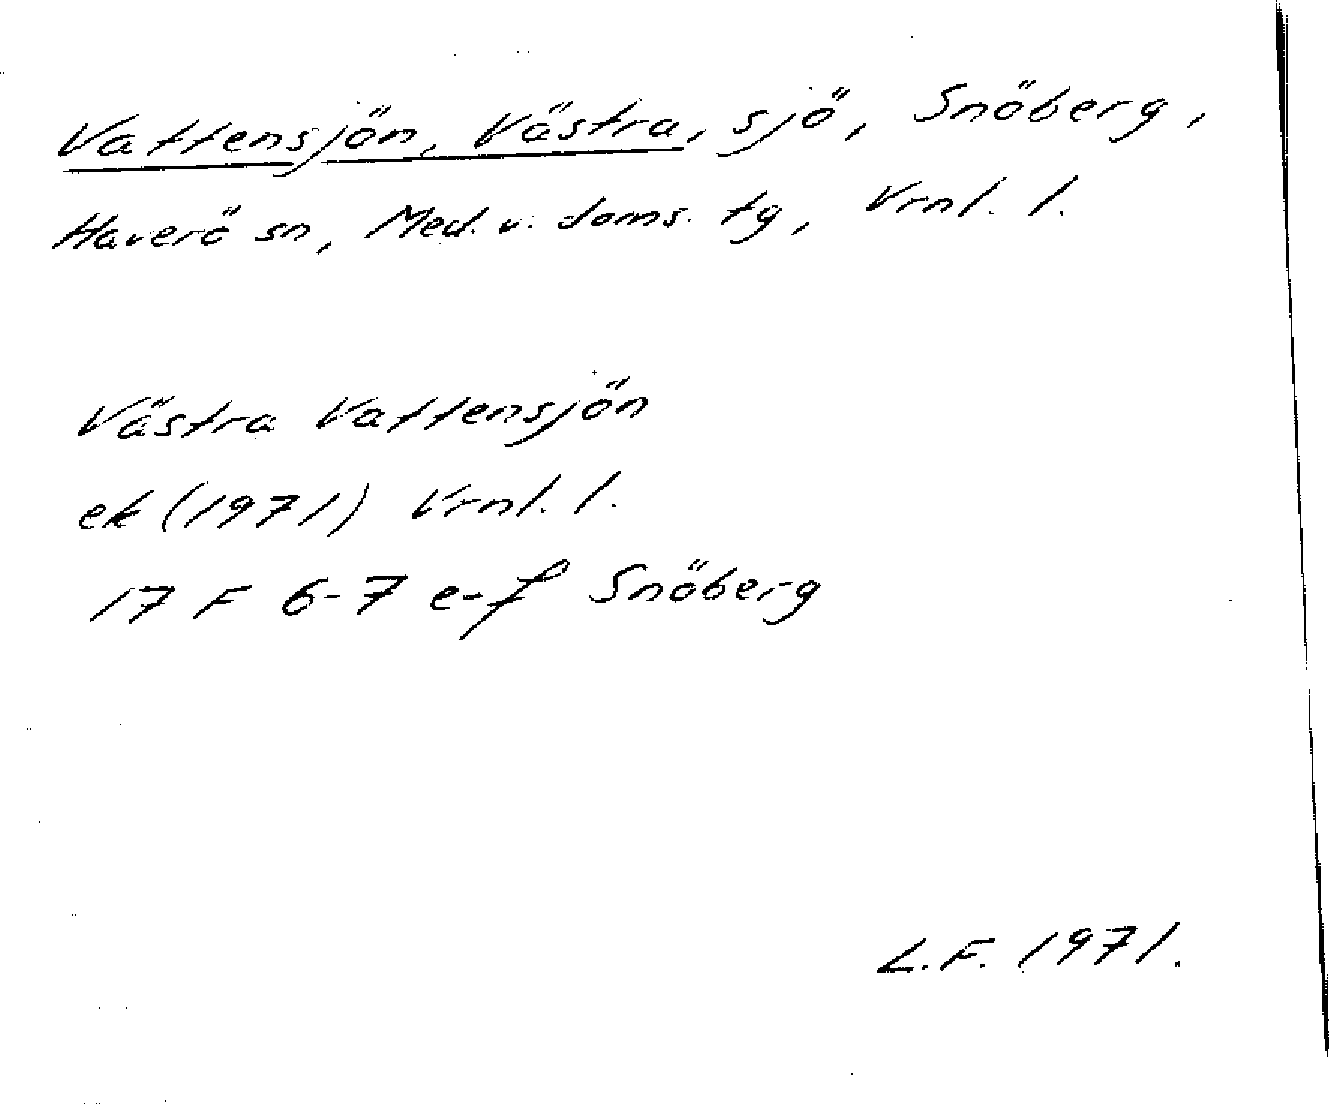 Vattensjön, Västra, sjö, Snöberg,
Haverö sn, Med. v. doms. tg, Vrnl. l.
Västra Vattensjön
ek (1971) Vrnl. l.
17 F 6-7 e-f Snöberg
L.F. 1971.